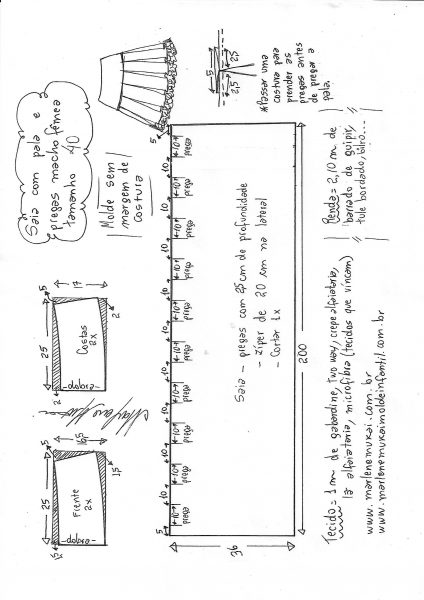 Saia com pala e
pregas macho fêmea
tamanho 40
Molde sem
margem de
costura
5
2,5
2,5
*Passar uma
costura para
prender as
pregas antes
de pregar a
pala.
25
1,5
Frente
2x
dobra
5
16,5
1,5
25
2
Costas
2x
dobra
5
17
2
5
10
prega
10
10
prega
10
10
prega
10
10
prega
10
10
prega
10
10
prega
10
10
prega
10
10
prega
10
10
prega
10
10
prega
5
Saia - pregas com 2,5 cm de profundidade
- Zíper de 20 cm na lateral
- Cortar 1x
36
200
Tecido = 1 m de gabardine, two way, crepe alfaiataria,
lã alfaiataria, microfibra (tecidos que vincam)
www.marlenemukai.com.br
www.marlenemukaimoldeinfantil.com.br
Renda = 2,10 m de
barrado de guipir,
tule bordado, bilro...